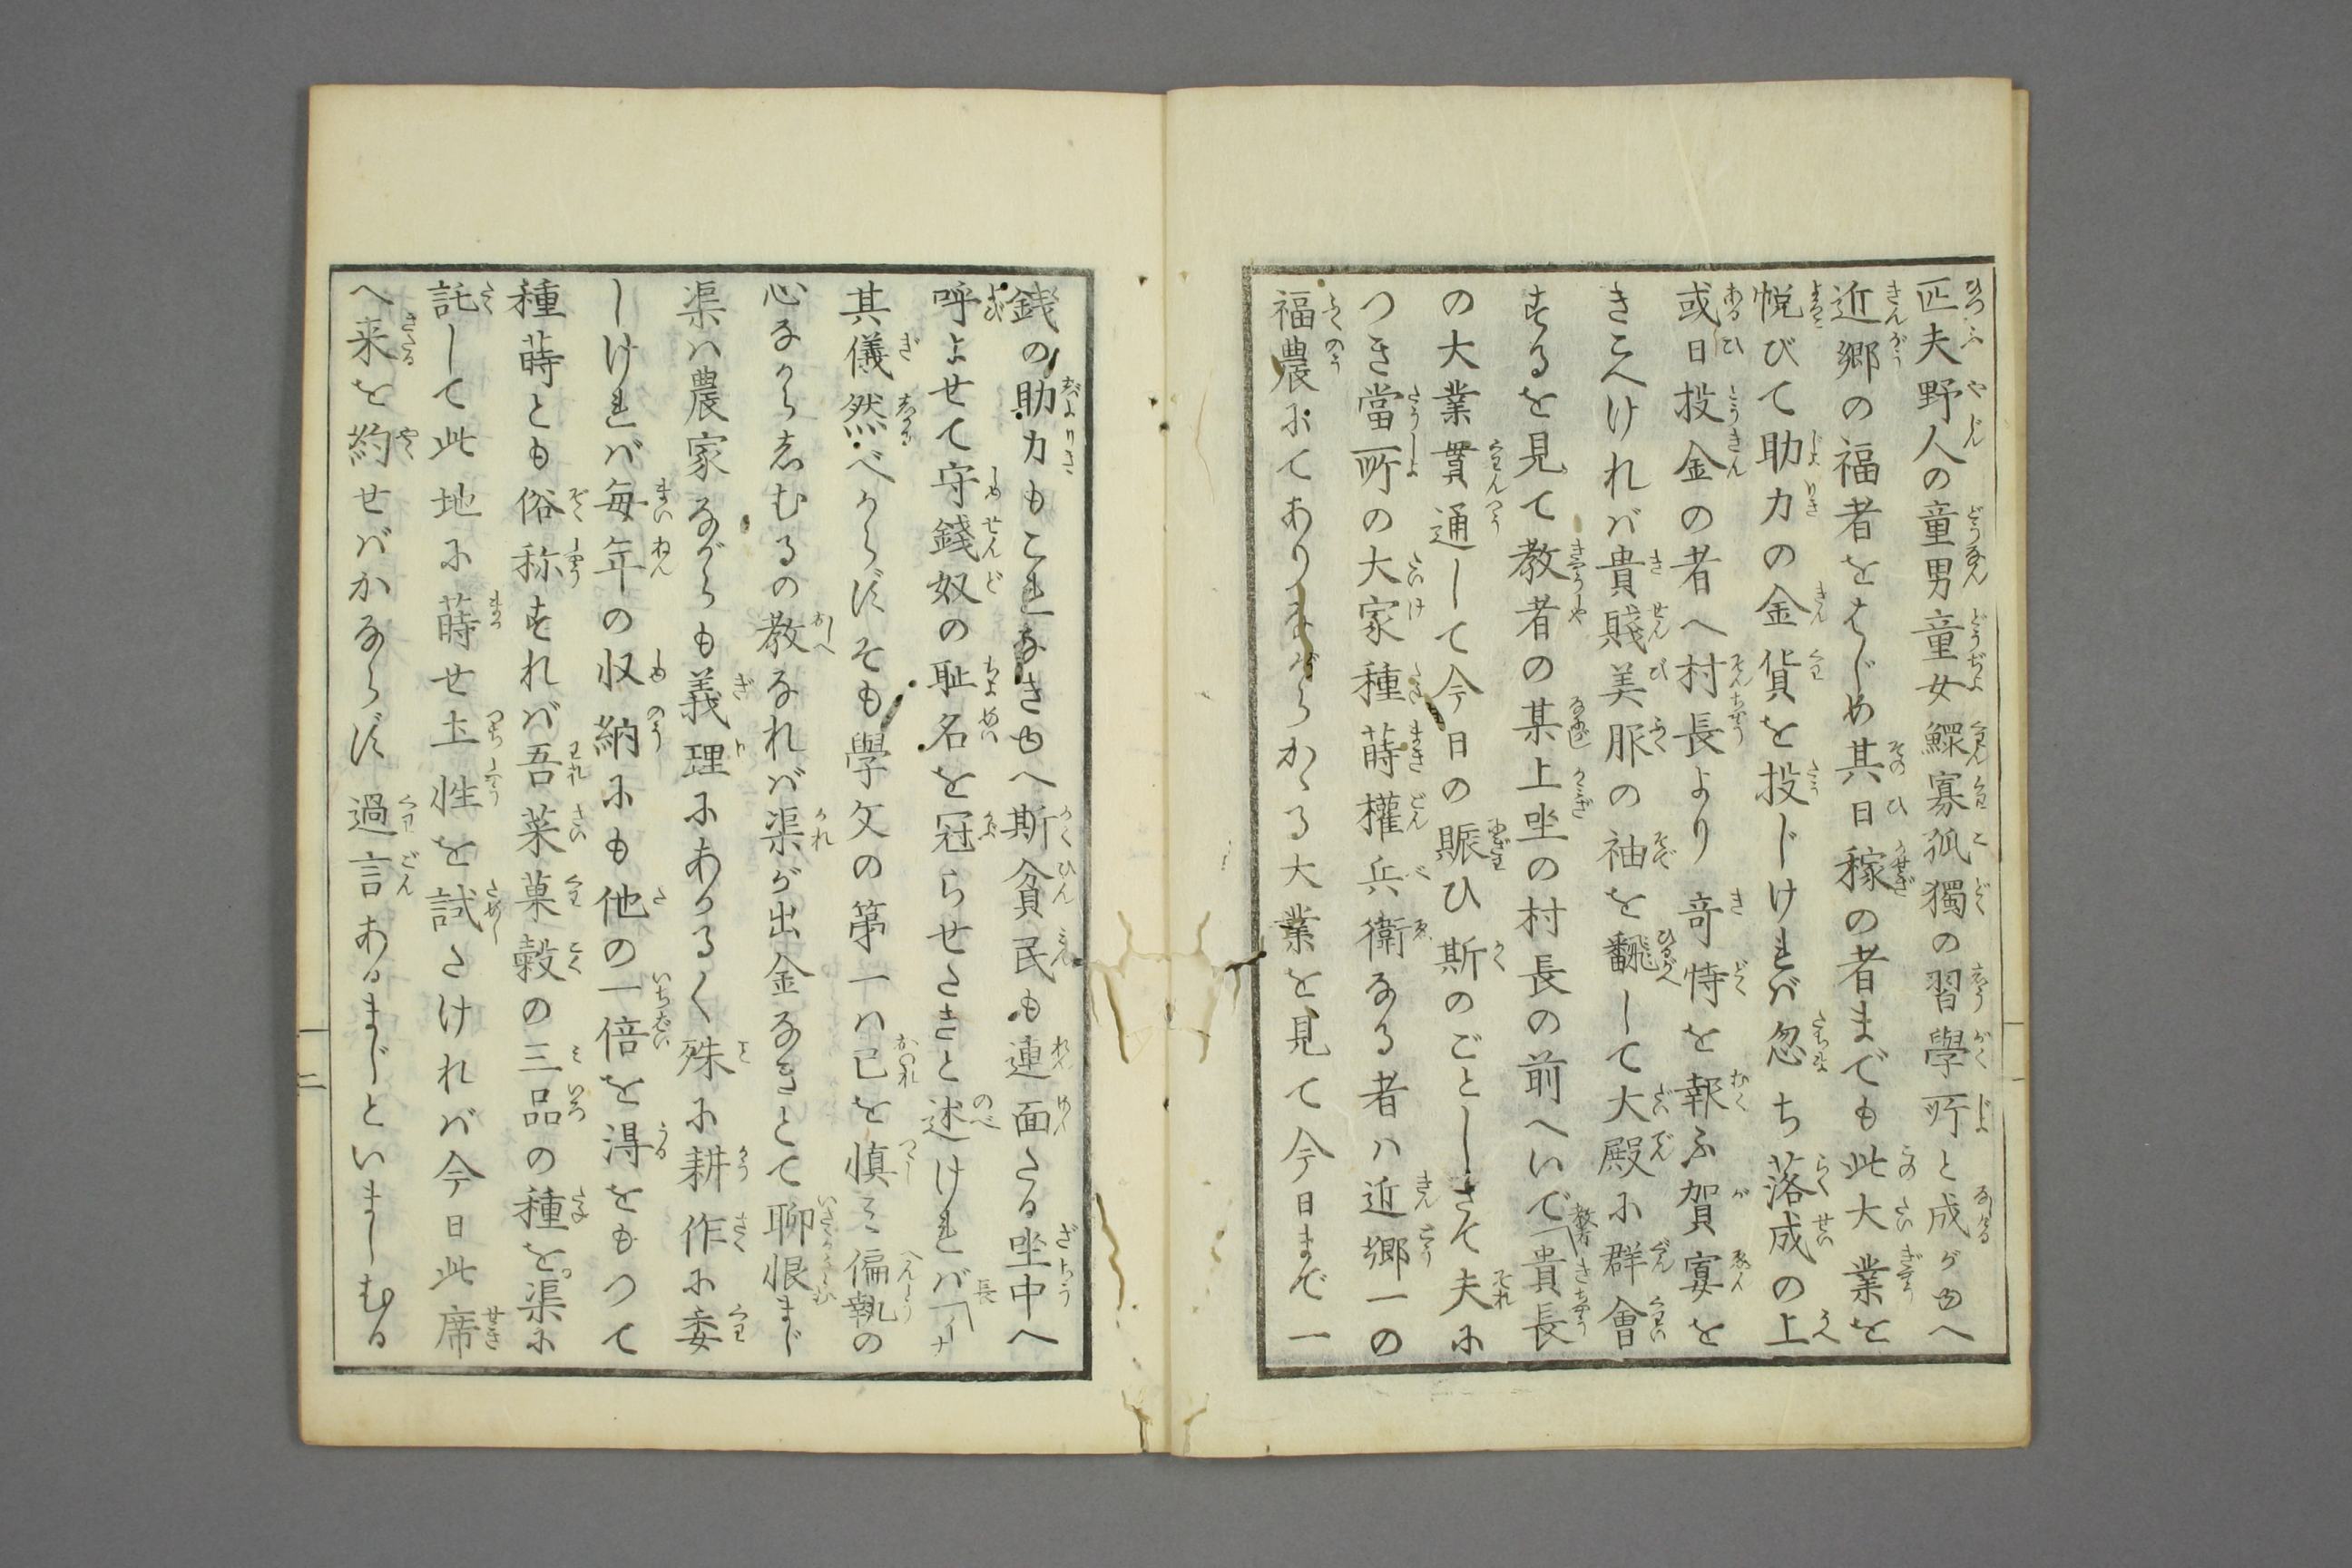 匹夫野人の童男童女鰥寡孤獨の習學所と成がゆへ
近郷の福者をはじめ其日稼の者までも此大業を
悦びて助力の金貨を投じければ忽ち落成の上
或日投金の者へ村長より奇特を報ふ賀宴を
きこへければ貴賤美服の袖を飜して大殿に群會
するを見て教者の某上坐の村長の前へいで「教者貴長
の大業貫通して今日の賑ひ斯のごとしさて夫に
つき當所の大家種蒔權兵衛なる者ハ近郷一の
福農にてありながらかゝる大業を見て今日まで一
銭の助力もこれなきゆへ斯貧民も連面たる坐中へ
呼よせて守錢奴の耻名を冠らせたきと述ければ「長イナ
其儀然べからずそも學文の第一ハ己を慎ミ偏執の
心なからしむるの教なれば渠が出金なきとて聊恨まじ
渠ハ農家ながらも義理にあかるく殊に耕作に委
しければ毎年の収納にも他の一倍を得をもつて
種蒔とも俗称すれば吾菜菓穀の三品の種をば渠に
託して此地に蒔せ土性を試さければ今日此席
へ来を約せばかならず過言あるまじといましむる
二